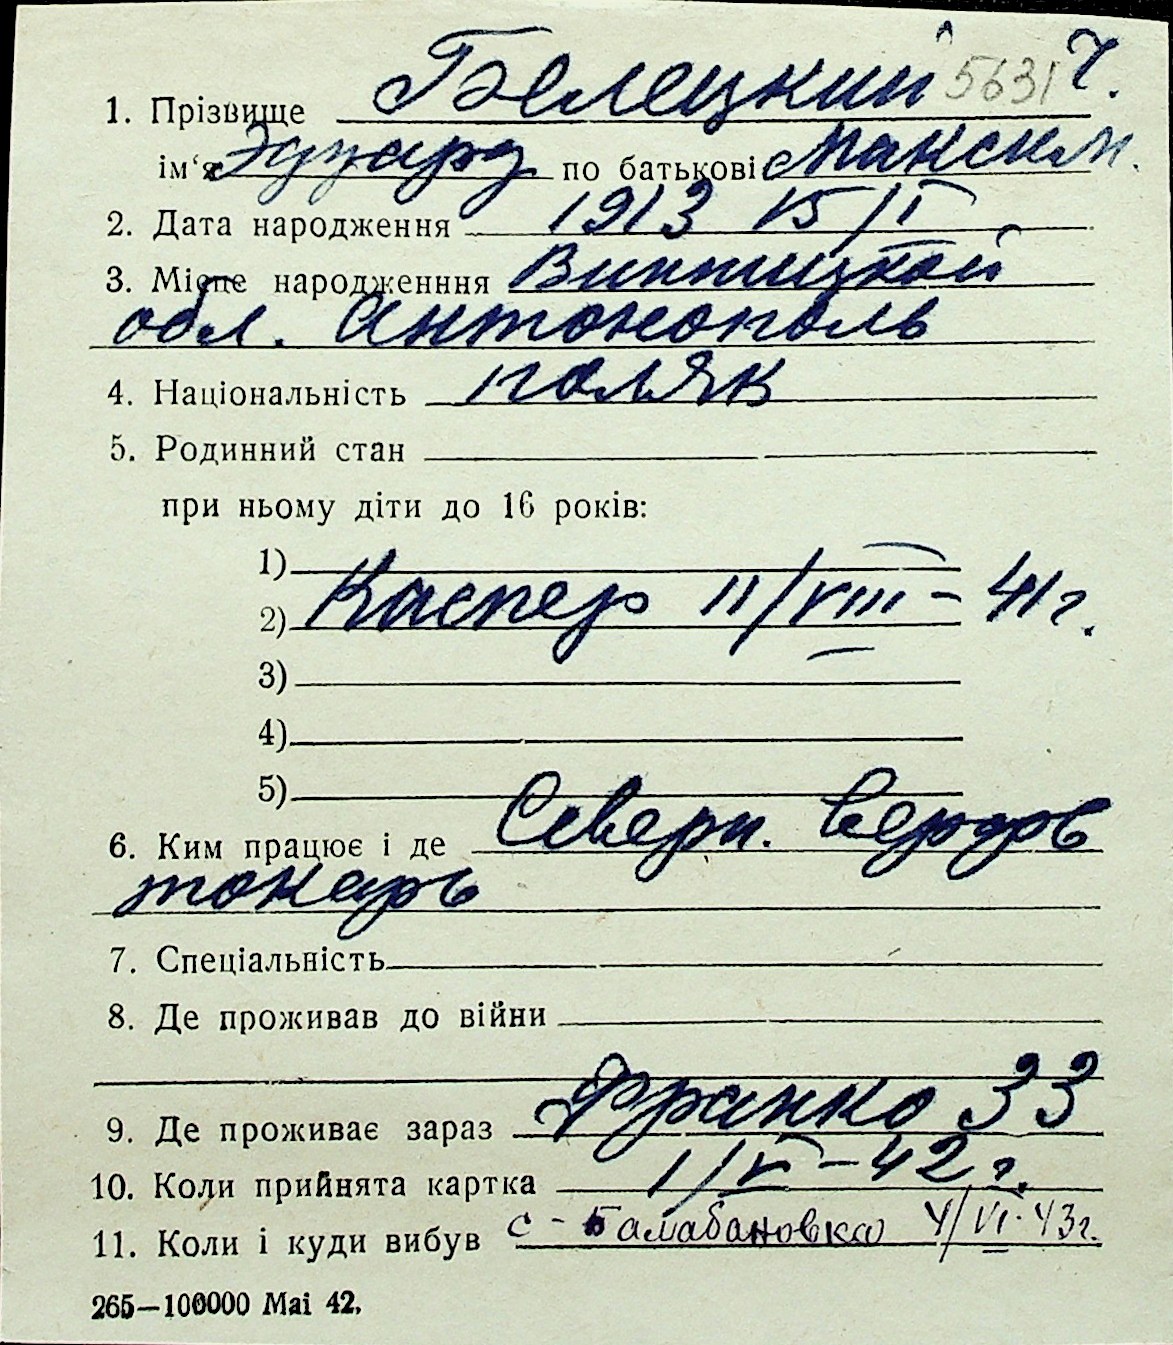 1. Прізвище Белецкий 5631 Ч.
ім'я Эдуард по батькові Максим.
2. Дата народження 1913 15/I
3. Місце народженння Винницкой
обл. Антонополь
4. Національність поляк
5. Родинний стан
при ньому діти до 16 років:
1)
2) Каспер 11/VIII – 41 г.
3)
4)
5)
6. Ким працює і де Северн. верфь
токарь
7. Спеціальність
8. Де проживав до війни
9. Де проживає зараз Франко 33
10. Коли прийнята картка 1/V – 42 г.
11. Коли і куди вибув с - Балабановка 4/VI · 43 г.
265—100000 Mai 42.